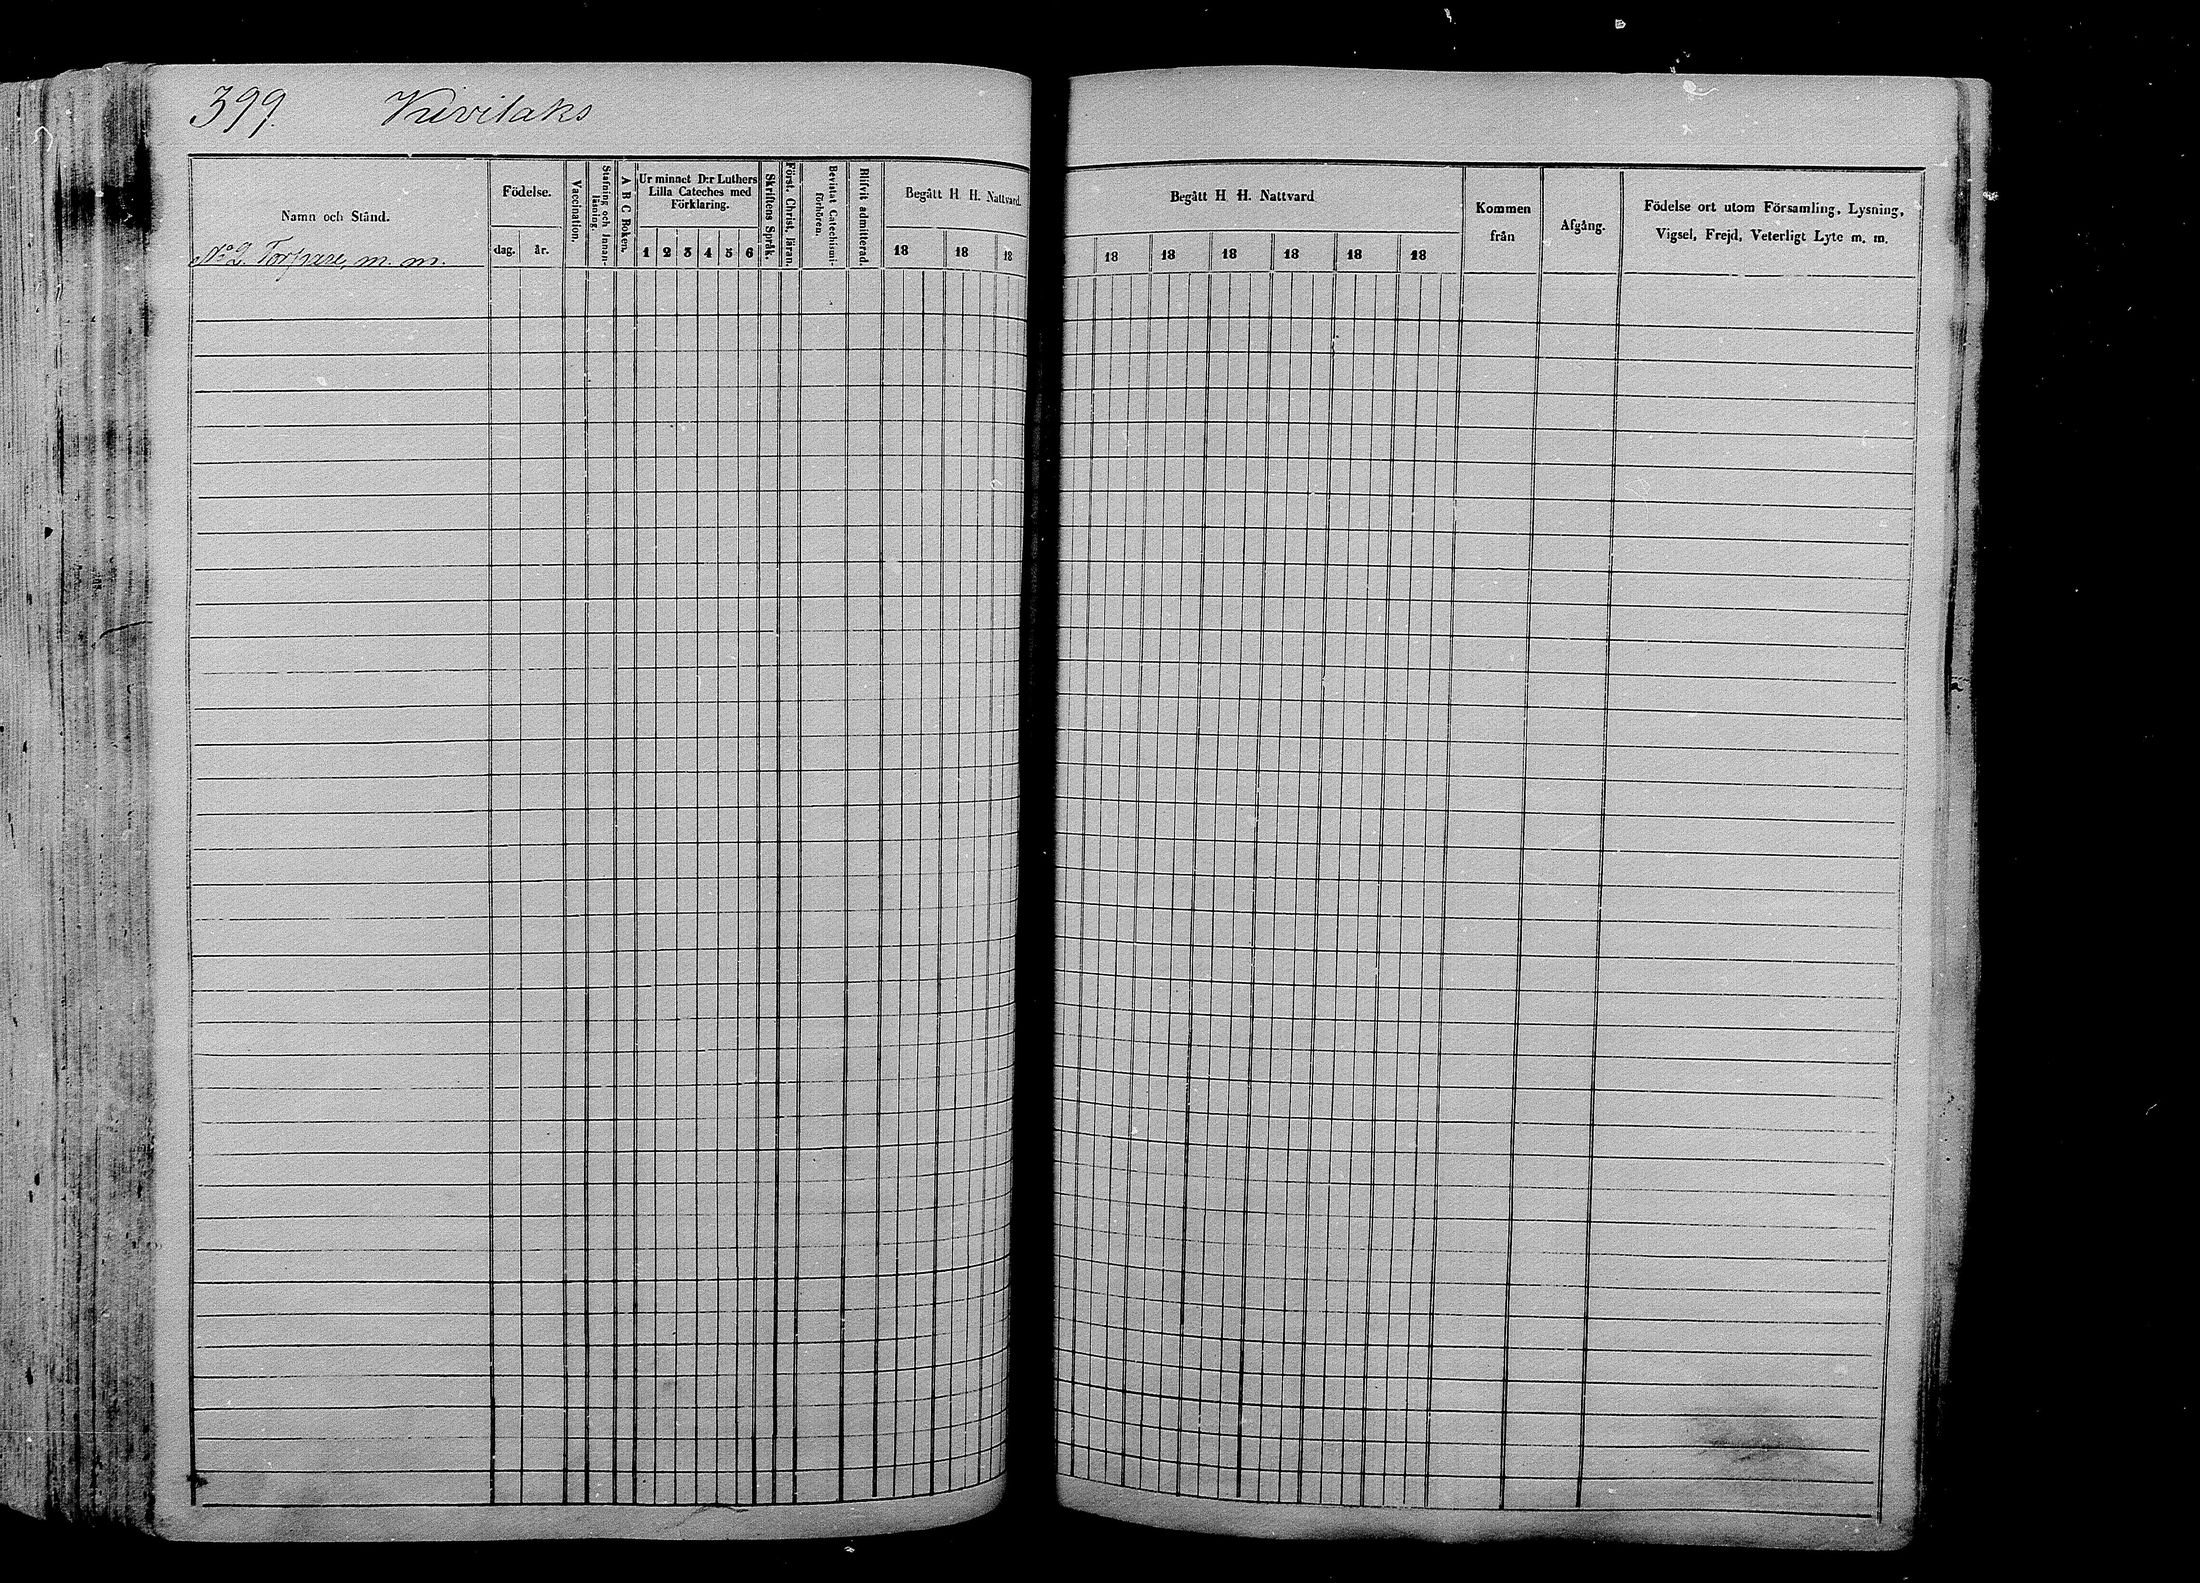 399. Kuvilaks
Namn och Stånd.
No 2. Torpare, m. m.
Födelse.
dag. år.
Vaccination.
Stafning och Innan-
läsning.
A B C Boken.
Ur minnet D:r Luthers
Lilla Cateches med
Förklaring.
1 2 3 4 5 6
Skriftens Språk.
Först. Christ. läran.
Bevistat Catechismi-
förhören.
Blifvit admitterad.
Begått H H. Nattvard.
18 18 18
Begått H H. Nattvard
18 18 18 18 18 18
Kommen
från
Afgång.
Födelse ort utom Församling, Lysning,
Vigsel, Frejd, Veterligt Lyte m. m.